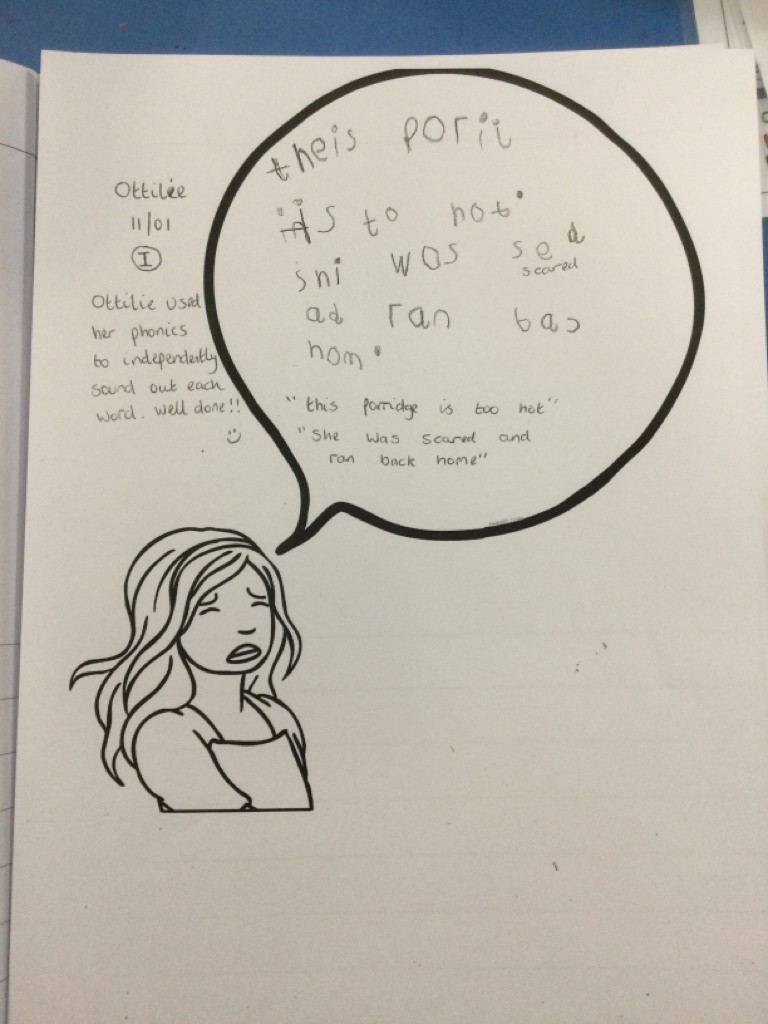 Ottilie
11/01
I
Ottilie used
her phonics
to independently
sound out each
word. well done!!
theis porij
is to hot.
shi was sed
scared
ad ran bac
hom.
"this porridge is too hot"
"She was scared and
ran back home"